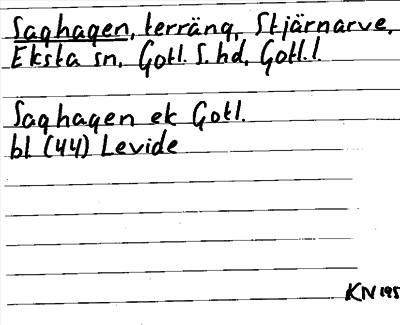 Saghagen, terräng, Stjärnarve,
Eksta sn. Gotl. S. hd, Gotl. l.
Saghagen ek Gotl.
bl (44) Levide
KN 195